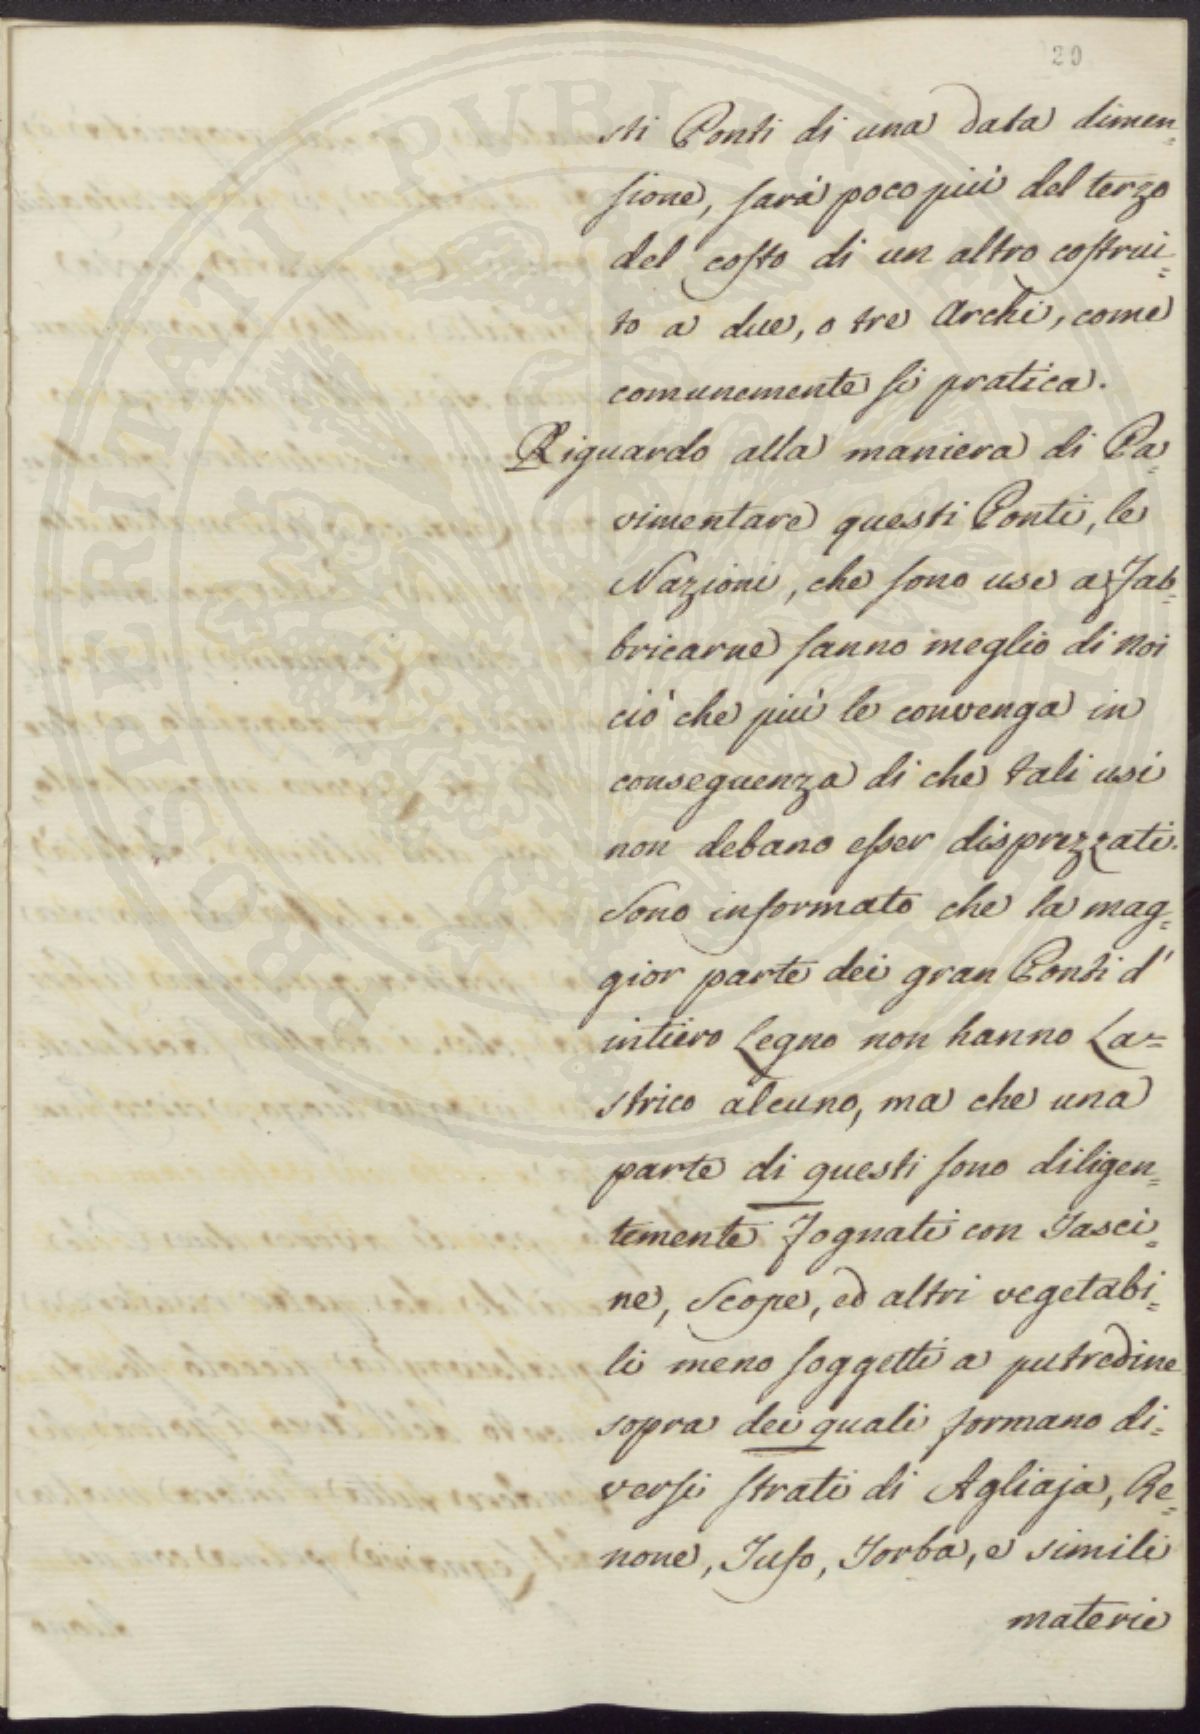 20
sti Ponti di una data dimen=
sione, sarà poco più del terzo
del costo di un altro costrui=
to a due, o tre Archi, come
comunemente si pratica.
Riguardo alla maniera di Pa=
vimentare questi Ponti, le
Nazioni, che sono use a Fab=
bricarne sanno meglio di noi
ciò che più le convenga in
conseguenza di che tali usi
non debano esser disprezzati.
Sono informato che la mag=
gior parte dei gran Ponti d'
intiero Legno non hanno La=
strico alcuno, ma che una
parte di questi sono diligen=
temente Fognati con Fasci=
ne, Scope, ed altri vegetabi=
li meno soggetti a putredine
sopra dei quali formano di=
versi strati di Agliaja, Re=
none, Tufo, Torba, e simili
materie
PROSPERITATI PVBLICAE